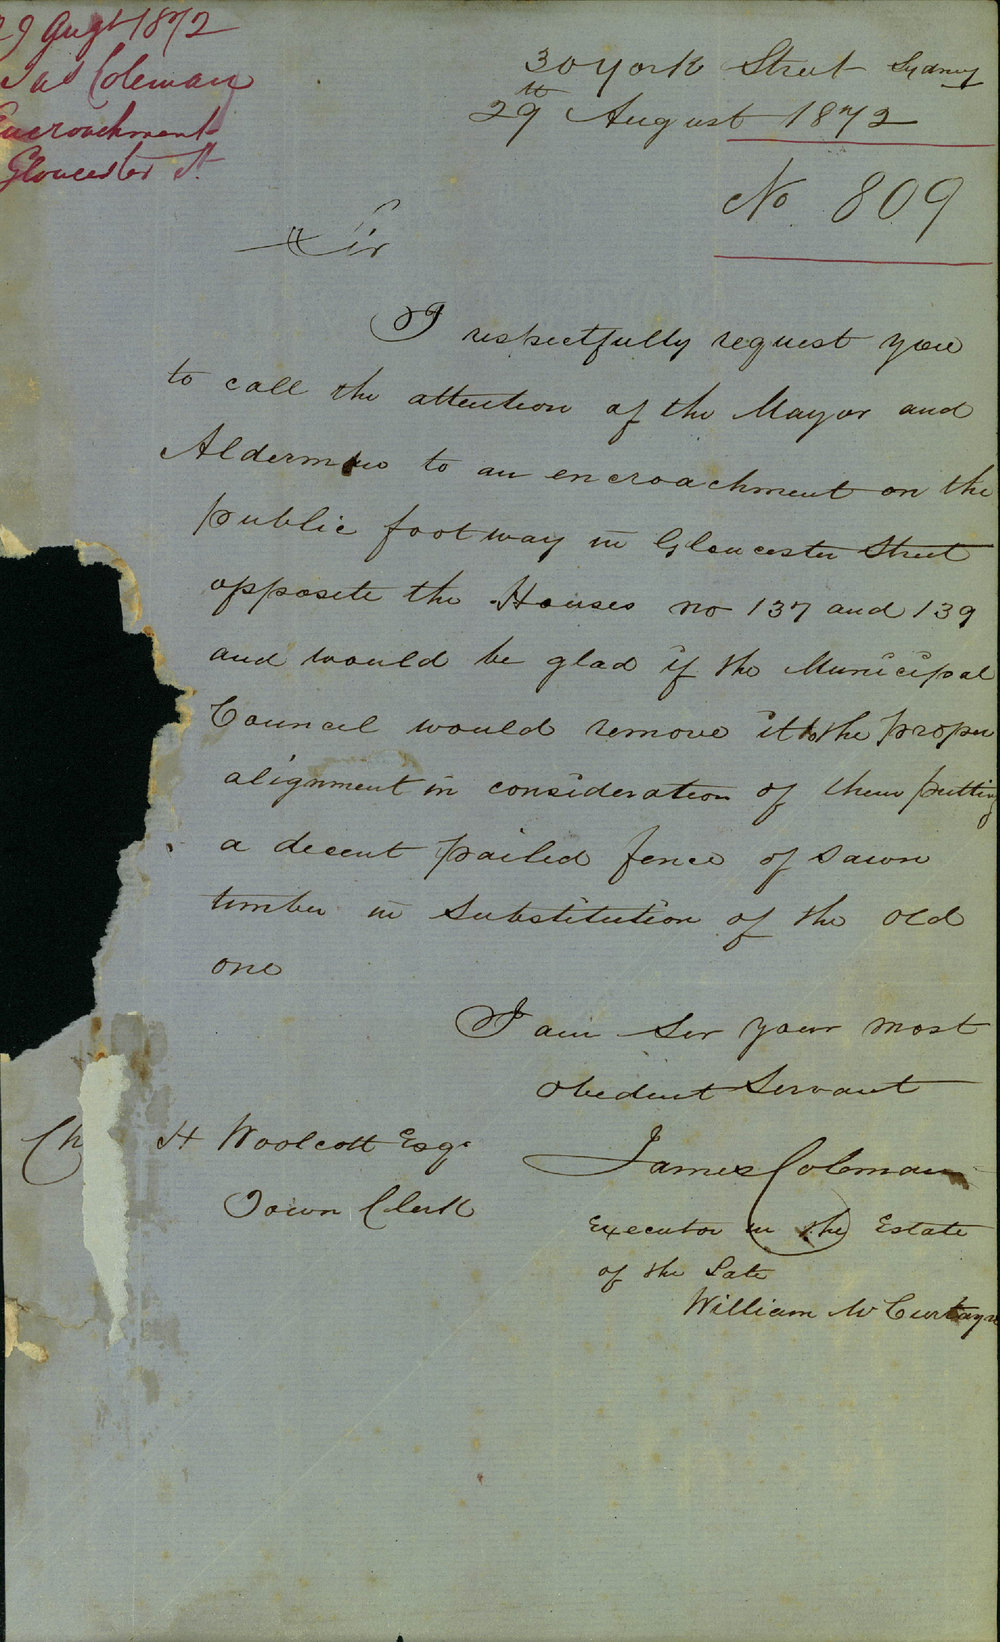 29 Augt 1872
Jas Coleman
Encroachment
Gloucester St
30 York Street Sydney
29th August 1872
No 809
Sir
I respectfully request you
to call the attention of the Mayor and
Aldermen to an encroachment on the
public footway in Gloucester Street
opposite the Houses no 137 and 139
and would be glad if the Municipal
Council would remove it to the proper
alignment in consideration of them putting
a decent pailed fence of sawn
timber in substitution of the old
one
I am Sir your most
obedient Servant
James Coleman
Executor in the Estate
of the Late
William McCurtayne
Ch H Woolcott Esqr
Town Clerk